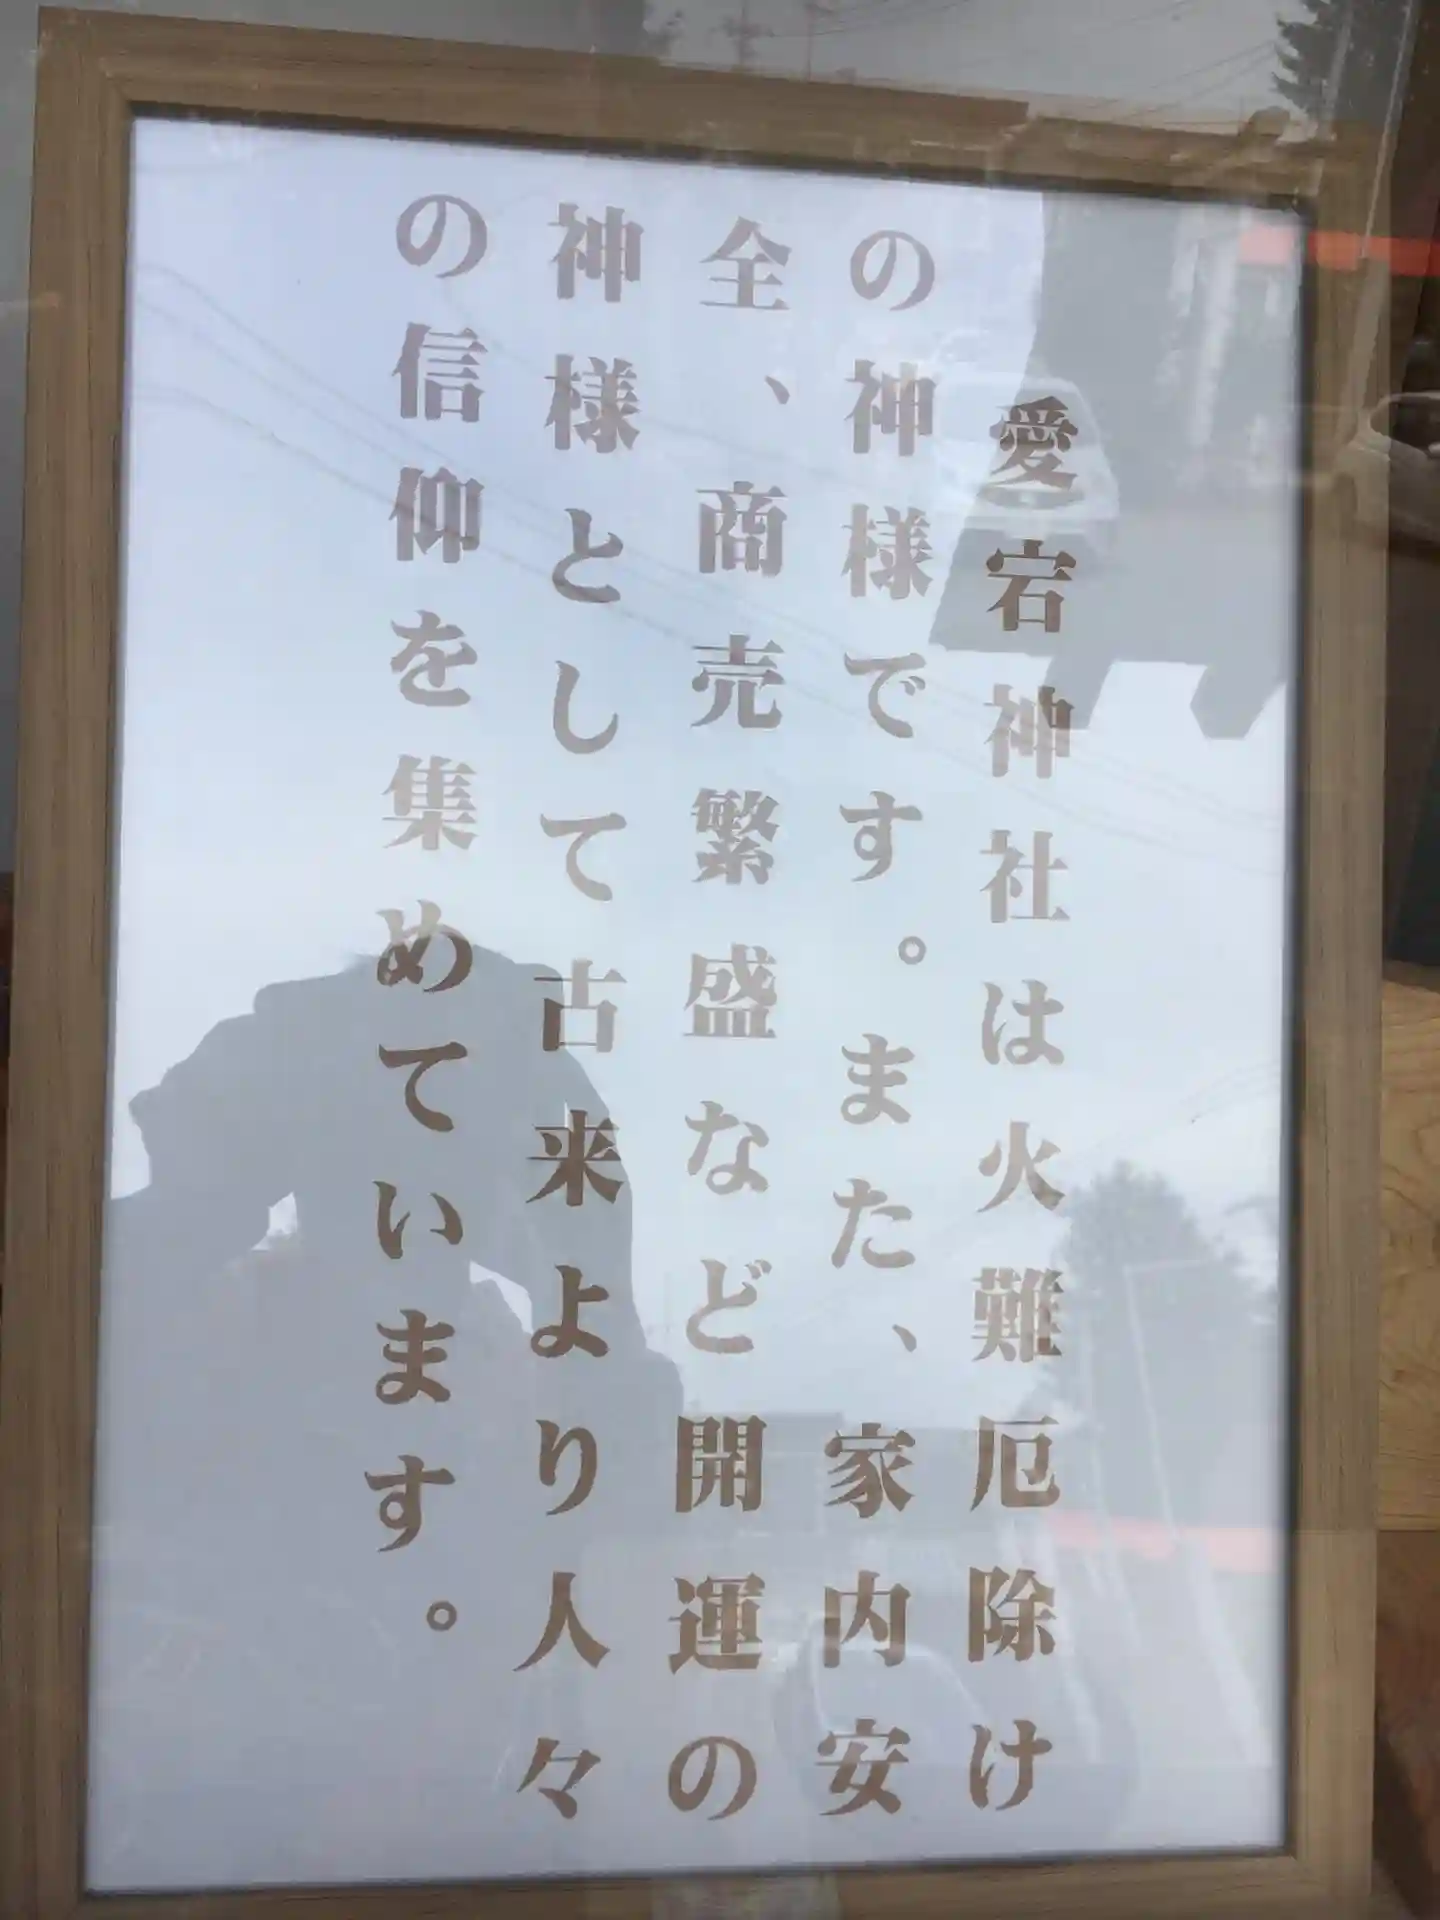 愛宕神社は火難厄除け
の神様です。また、家内安
全、商売繁盛など開運の
神様として古来より人々
の信仰を集めています。